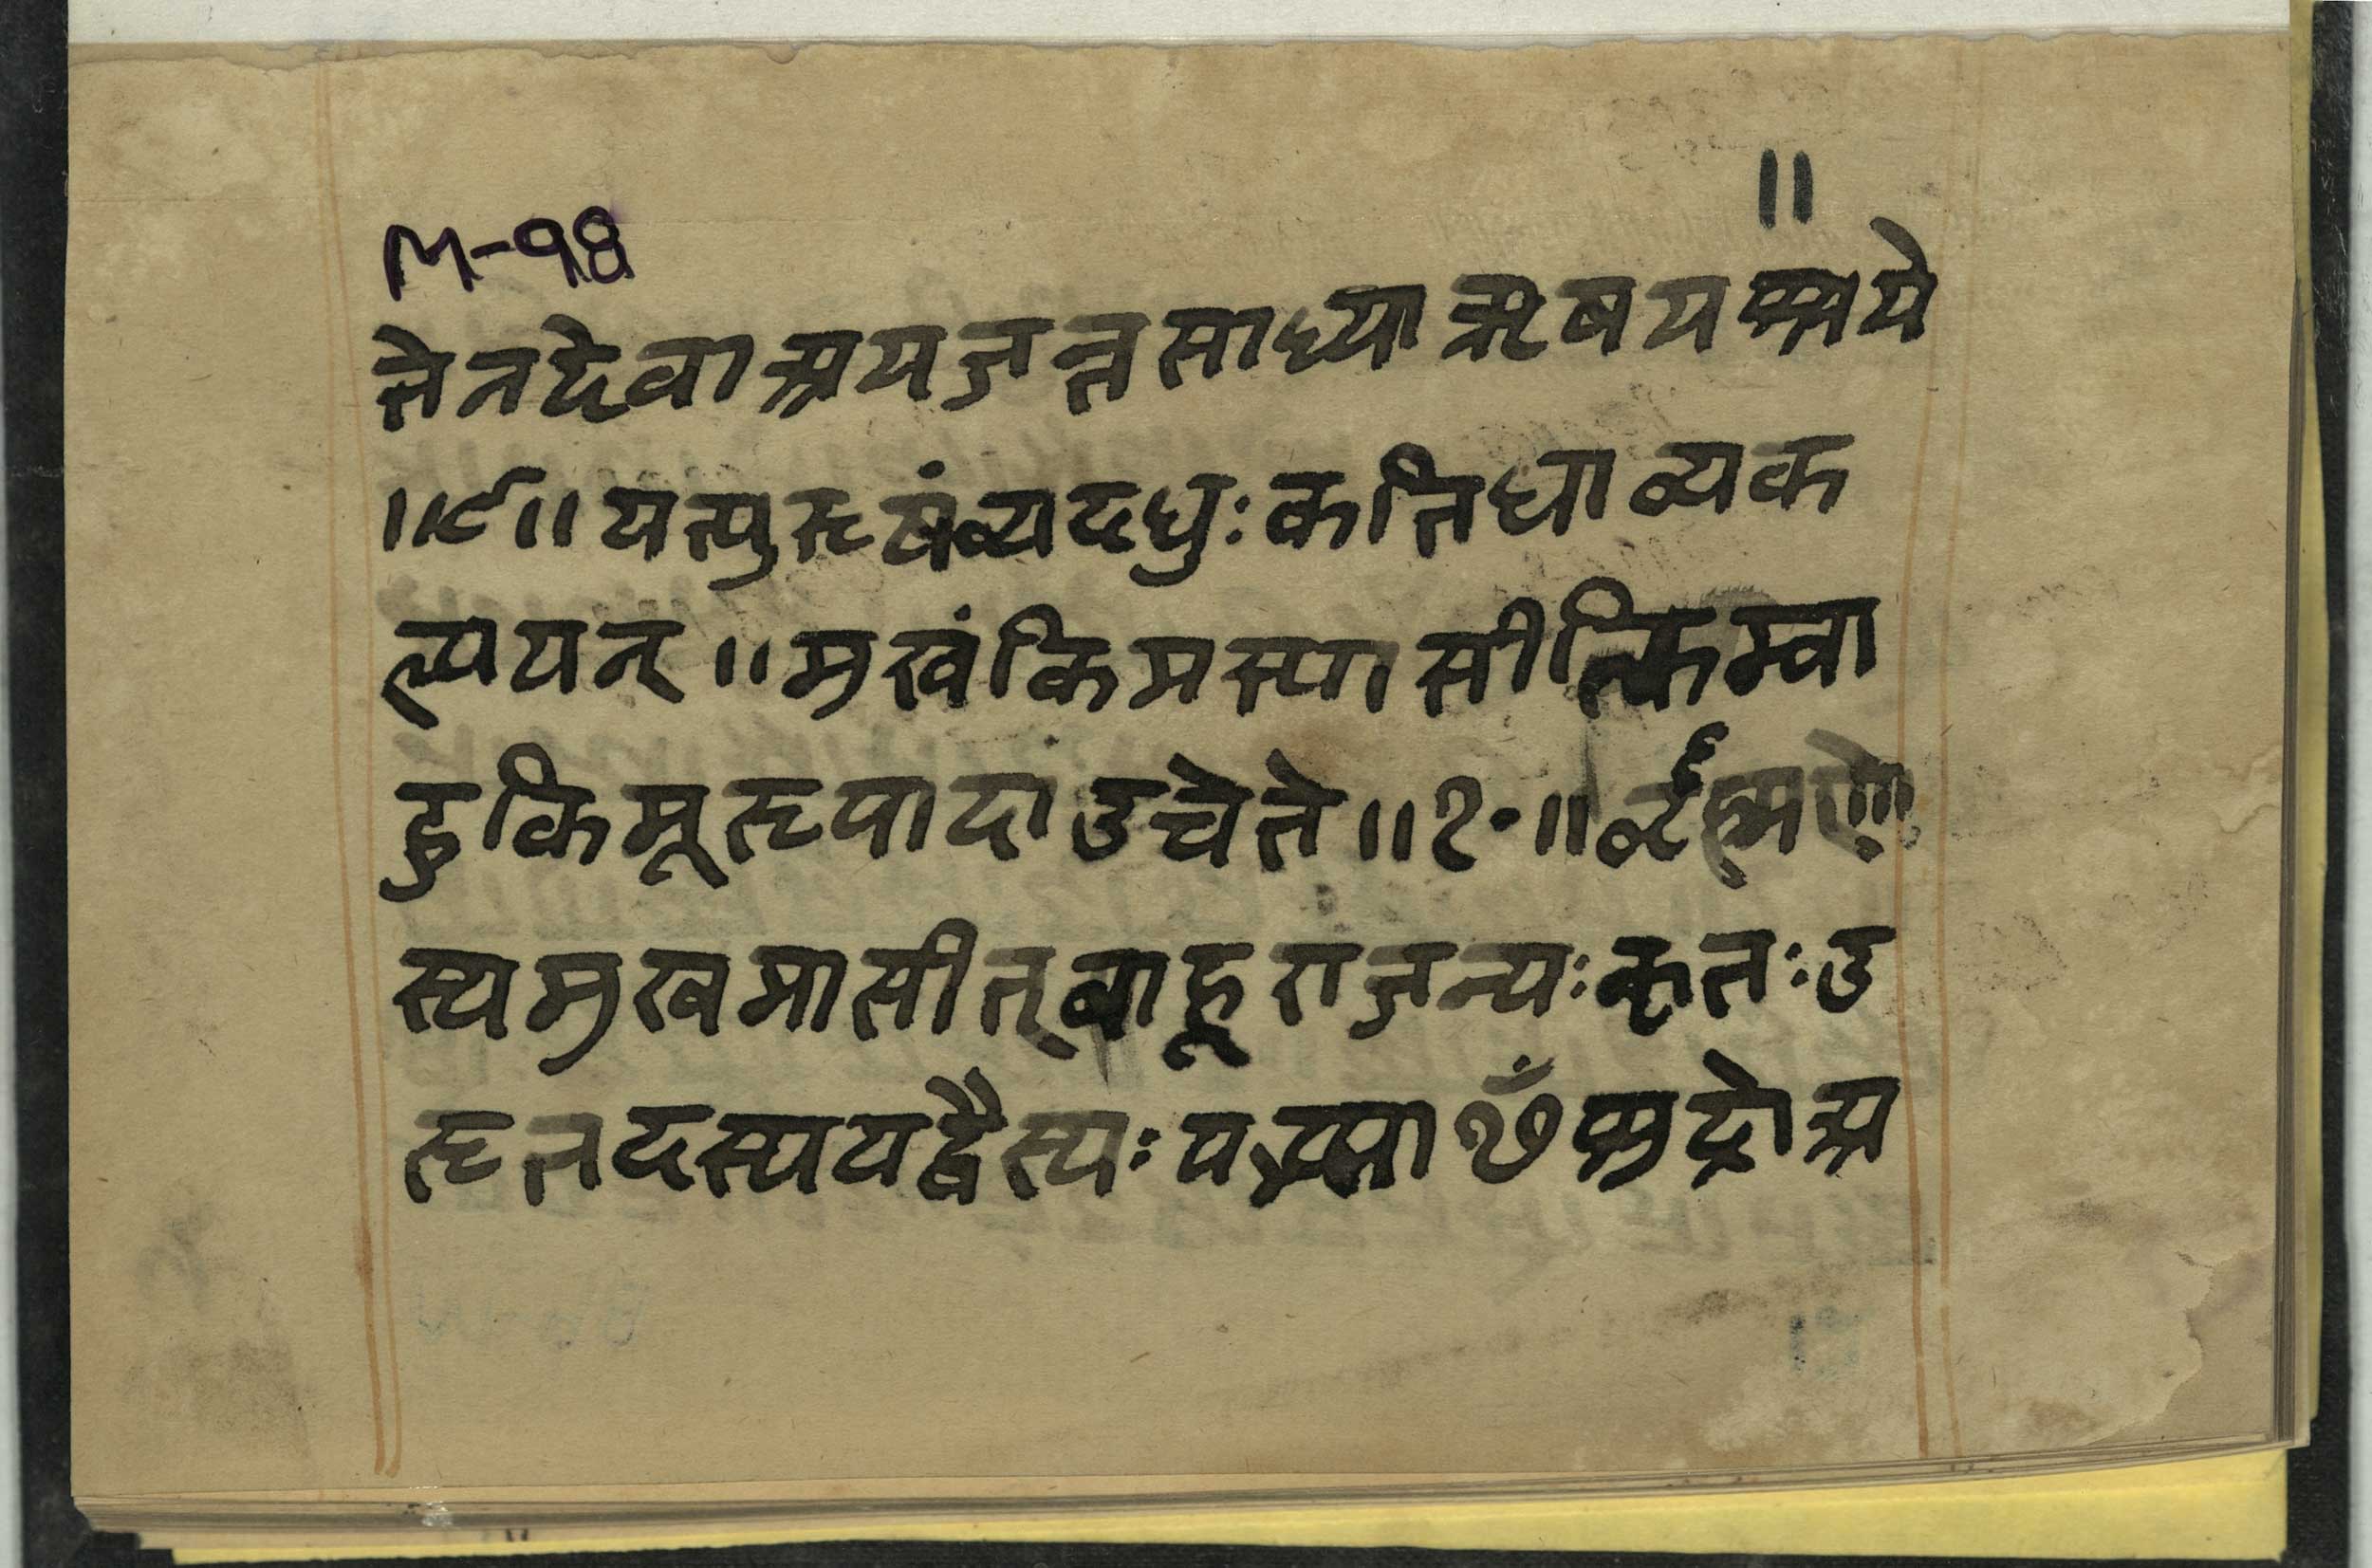 ॥
M-98
तेनदेवाअयजन्तसाध्याऋषयश्चये
॥९॥यत्पुरूषंव्यदधुःकतिधाव्यक
ल्पयन्॥मुखंकिमस्यासीत्किम्बा
हुकिमूरूपादाउचेते॥१०॥ब्रह्मणो
स्यमुखमासीत्बाहूराजन्यःकृतःउ
रूतदस्ययद्वैस्यःपद्भ्याꣳशुद्रोअ